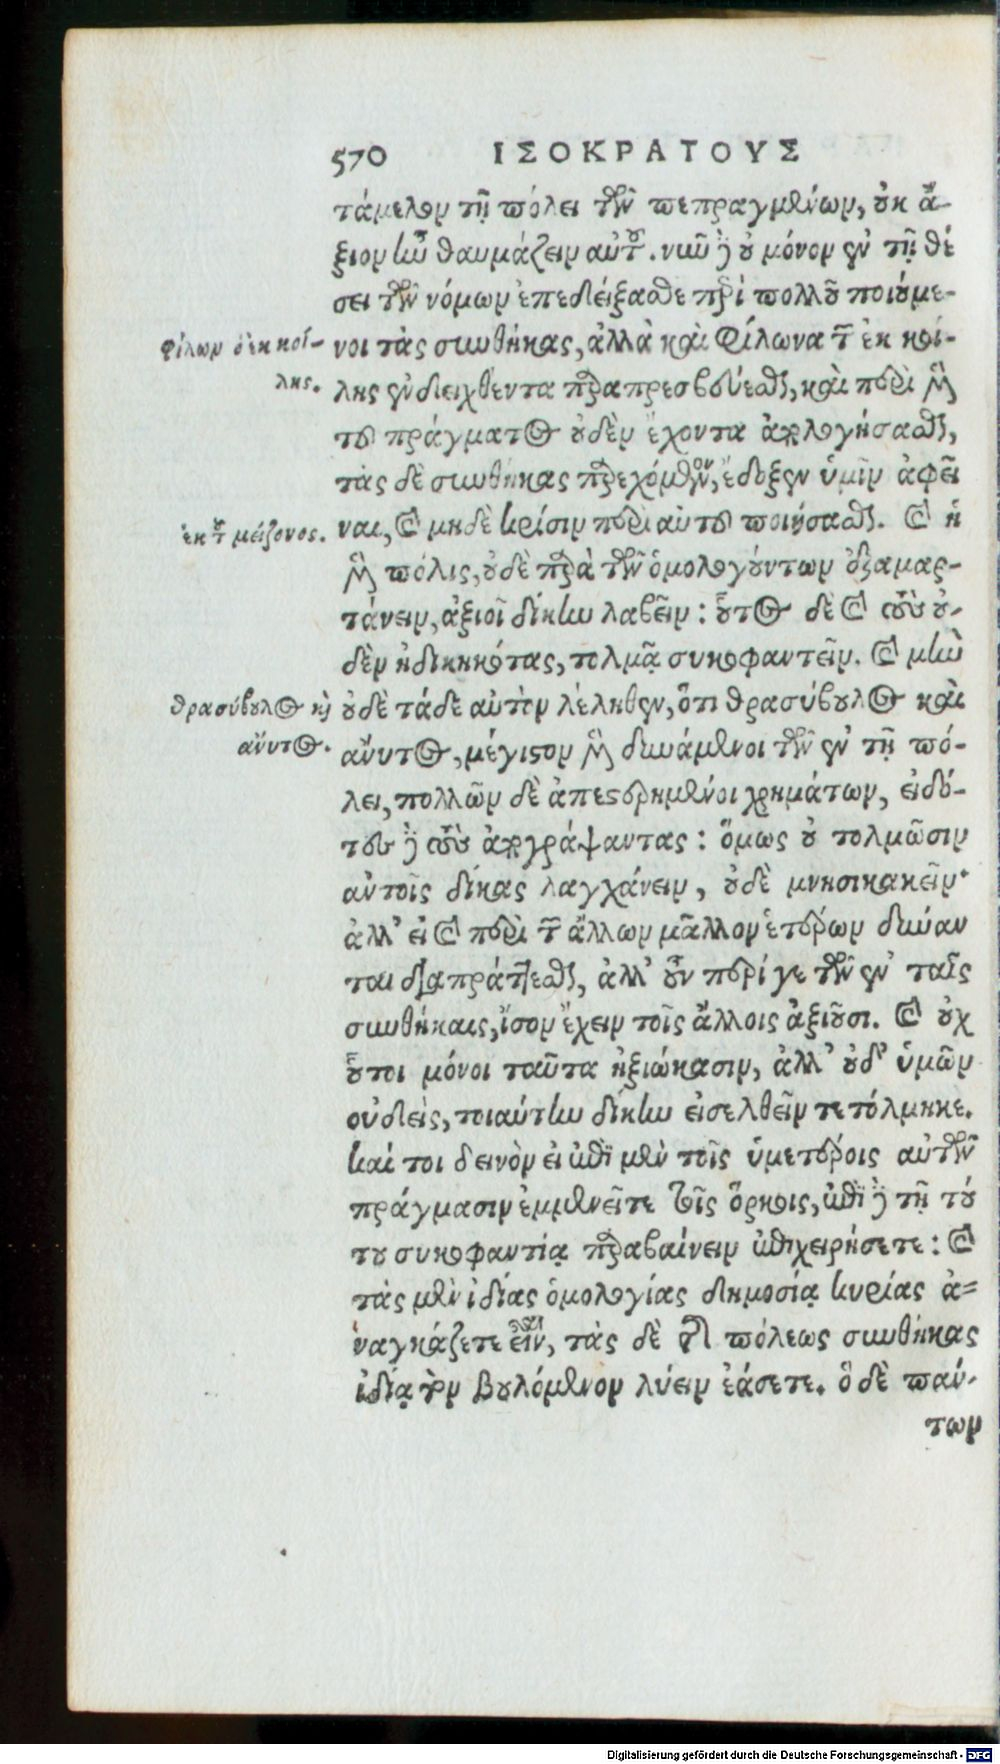 570 ΙΣΟΚΡΑΤΟΥΣ
τάμελον τῇ πόλει τῶν πεπραγμένων, οὐκ ἄ-
ξιον ἦν θαυμάζειν αὐτοῦ. νῦν δὲ οὐ μόνον ἐν τῇ θέ
σει τῶν νόμων ἐπεδείξασθε περὶ πολλοῦ ποιούμε-
νοι τὰς συνθήκας, ἀλλὰ καὶ Φίλωνα τὸν ἐκ κοί-
λης ἐνδειχθέντα παραπρεσβεύεσθαι, καὶ περὶ μὲν
τοῦ πράγματος οὐδὲν ἔχοντα ἀπολογήσασθαι,
τὰς δὲ συνθήκας παρεχόμενον, ἔδοξεν ὑμῖν ἀφεῖ
ναι, καὶ μηδὲ κρίσιν περὶ αὐτοῦ ποιήσασθαι. καὶ ἡ
μὲν πόλις, οὐδὲ παρὰ τῶν ὁμολογούντων ἐξαμαρ-
τάνειν, ἀξιοῖ δίκην λαβεῖν: οὗτος δὲ καὶ τοὺς οὐ-
δὲν ἠδικηκότας, τολμᾷ συκοφαντεῖν. καὶ μὴν
οὐδὲ τάδε αὐτὸν λέληθεν, ὅτι θρασύβουλος καὶ
ἄνυτος, μέγιστον μὲν δυνάμενοι τῶν ἐν τῇ πό-
λει, πολλῶν δὲ ἀπεστερημένοι χρημάτων, εἰδό-
τες δὲ τοὺς ἀπογράψαντας: ὅμως οὐ τολμῶσιν
αὐτοῖς δίκας λαγχάνειν, οὐδὲ μνησικακεῖν·
ἀλλ' εἰ καὶ περὶ τῶν ἄλλων μᾶλλον ἑτέρων δύναν
ται διαπράττεσθαι, ἀλλ' οὖν περί γε τῶν ἐν ταῖς
συνθήκαις, ἴσον ἔχειν τοῖς ἄλλοις ἀξιοῦσι. καὶ οὐχ
οὗτοι μόνοι ταῦτα ἠξιώκασιν, ἀλλ' οὐδ' ὑμῶν
οὐδεὶς, τοιαύτην δίκην εἰσελθεῖν τετόλμηκε.
καί τοι δεινὸν εἰ ἐπὶ μὲν τοῖς ὑμετέροις αὐτῶν
πράγμασιν ἐμμενεῖτε τοῖς ὅρκοις, ἐπὶ δὲ τῇ τού
του συκοφαντίᾳ παραβαίνειν ἐπιχειρήσετε: καὶ
τὰς μὲν ἰδίας ὁμολογίας δημοσίᾳ κυρίας ἀ-
ναγκάζετε εἶναι, τὰς δὲ τῆς πόλεως συνθήκας
ἰδίᾳ τὸν βουλόμενον λύειν ἐάσετε. ὃ δὲ πάν-
των
φίλων ὁ ἐκ κοί-
λης.
ἐκ τοῦ μείζονος.
θρασύβουλος καὶ
ἄνυτος.
Digitalisierung gefördert durch die Deutsche Forschungsgemeinschaft - DFG